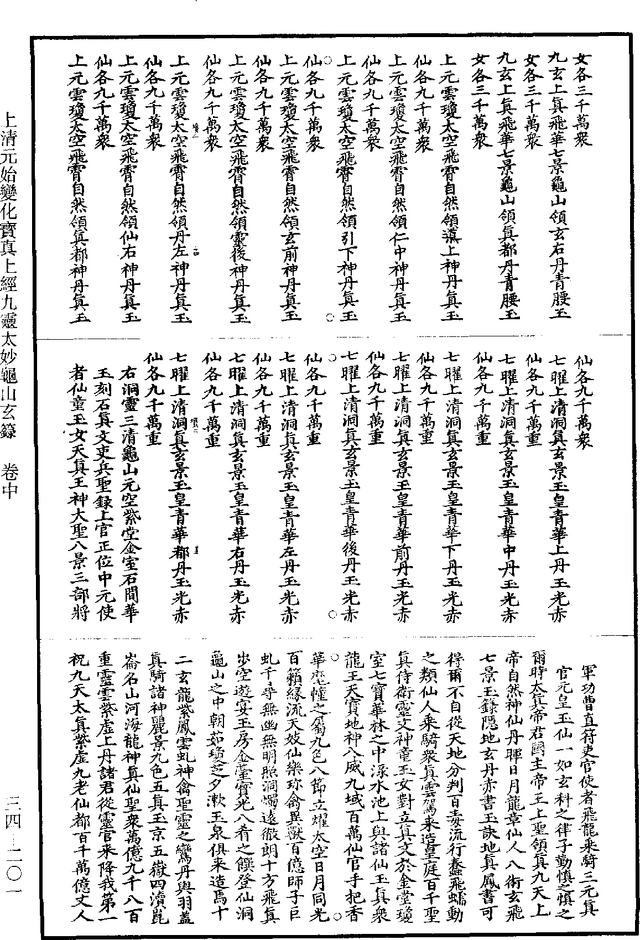 女各三千萬衆
九玄上真飛華七景龜山領玄右丹青腰玉
女各三千萬衆
九玄上真飛華七景龜山領真都丹青腰玉
女各三千萬衆
上元雲瓊太空飛霄自然領凛上神丹真玉
仙各九千萬衆
上元雲瓊太空飛霄自然領仁中神丹真玉
仙各九千萬衆
上元雲瓊太空飛霄自然領引下神丹真玉
仙各九千萬衆
上元雲瓊太空飛霄自然領玄前神丹真玉
仙各九千萬衆
上元雲瓊太空飛霄自然領靈後神丹真玉
仙各九千萬衆
上元雲瓊太空飛霄自然領丹左神丹真玉
仙各九千萬衆
上元雲瓊太空飛霄自然領仙右神丹真玉
仙各九千萬衆
上元雲瓊太空飛霄自然領真都神丹真玉
仙各九千萬衆
七曜上清洞真玄景玉皇青華上丹玉光赤
仙各九千萬重
七曜上清洞真玄景玉皇青華中丹玉光赤
仙各九千萬重
七曜上清洞真玄景玉皇青華下丹玉光赤
仙各九千萬重
七曜上清洞真玄景玉皇青華前丹玉光赤
仙各九千萬重
七曜上清洞真玄景玉皇青華後丹玉光赤
仙各九千萬重
七曜上清洞真玄景玉皇青華左丹玉光赤
仙各九千萬重
七曜上清洞真玄景玉皇青華右丹玉光赤
仙各九千萬重
七曜上清洞真玄景玉皇青華都丹玉光赤
仙各九千萬重
右洞靈三清龜山元空紫堂金室石間華
玉刻石真文吏兵聖錄上官正位中元使
者仙童玉女天真王神大聖八景三部將
軍功曹直符吏官使者飛龍乘騎三元真
官元皇玉仙一如玄科之律子勤慎慎之
爾時太真帝君關主帝王上聖領真九天上
帝自然神仙丹暉日月龍章仙人八術玄飛
七景玉錄隱地玄丹赤書玉訣地真鳳書可
得爾不自從天地分判百毒流行蠢飛蠕動
之類仙人乘騎衆真雲駕來造皇庭百千聖
真侍衛靈文神童玉女對立真文於金堂瓊
室七寶華林之中淥水池上與諸仙玉真衆
龍王天寶地神八威九域百萬仙官手把香
華麾幢之屬九色八節立耀太空日月同光
百籟緣流天妓仙樂珍禽異獸百億師子巨
虬千尋無幽無明照洞燭遠徹朗十方飛真
步空遊宴玉房金臺寶光八肴之饌登仙洞
龜山之中朝茹瓊芝夕漱玉泉俱來造焉十
二玄龍紫鳳雲虬神禽聖靈之鸞丹輿羽蓋
真騎諸神麗景九色五真玉京五嶽四瀆崑
崙名山河海龍神真仙聖衆萬億九千八百
重靈雲紫虛上丹諸君從靈官來降我第一
祝九天太真紫虛九老仙都百千萬億丈人
上清元始變化寶真上經九靈太妙龜山玄籙　卷中
三四—二〇一